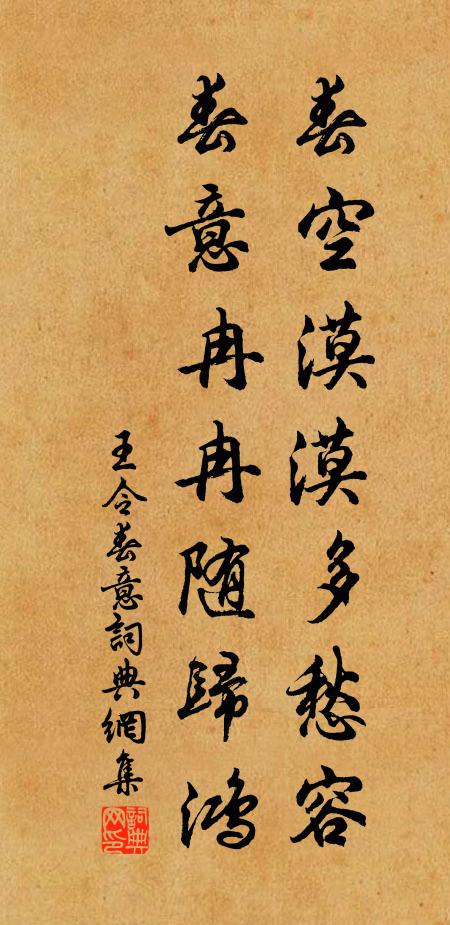 春空漠漠多愁容
春意冉冉随歸鴻
王令春意詞典網集
詞典网印